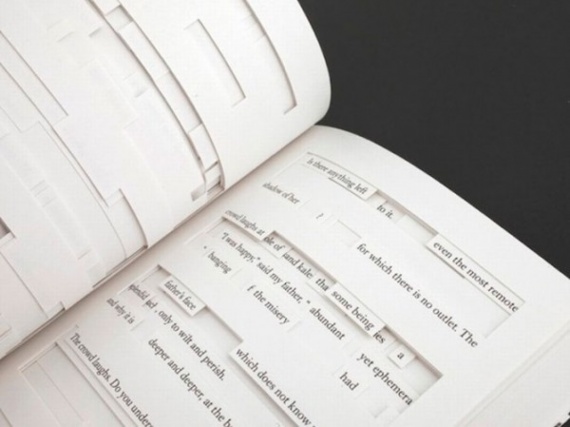 is there anything left
shadow of her
to it.
even the most remote
for which there is no outlet. The
crowd laughs at
"I was happy," said my father, " abundant
some being
hanging
the misery
father's face
yet ephemera
a
and why it is
only to wilt and perish.
which does not know
had
deeper and deeper, at the b
The crowd laughs. Do you under